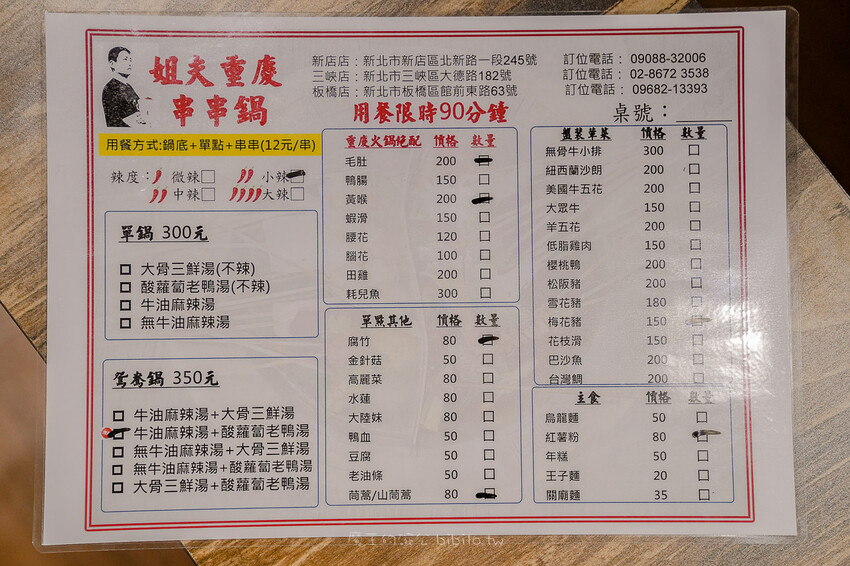 姐夫重慶
串串鍋
新店店：新北市新店區北新路一段245號 訂位電話： 09088-32006
三峽店：新北市三峽區大德路182號 訂位電話： 02-8672 3538
板橋店：新北市板橋區館前東路63號 訂位電話： 09682-13393
用餐限時90分鐘
桌號：
用餐方式:鍋底+單點+串串(12元/串)
辣度： 微辣□ 小辣□
中辣□ 大辣□
單鍋 300元
□ 大骨三鮮湯(不辣)
□ 酸蘿蔔老鴨湯(不辣)
□ 牛油麻辣湯
□ 無牛油麻辣湯
鴛鴦鍋 350元
□ 牛油麻辣湯+大骨三鮮湯
□ 牛油麻辣湯+酸蘿蔔老鴨湯
□ 無牛油麻辣湯+大骨三鮮湯
□ 無牛油麻辣湯+酸蘿蔔老鴨湯
□ 大骨三鮮湯+酸蘿蔔老鴨湯
重慶火鍋絕配 價格 數量
毛肚 200 □
鴨腸 150 □
黃喉 200 □
蝦滑 150 □
腰花 120 □
腦花 100 □
田雞 200 □
耗兒魚 300 □
單點其他 價格 數量
腐竹 80 □
金針菇 50 □
高麗菜 80 □
水蓮 80 □
大陸妹 80 □
鴨血 50 □
豆腐 50 □
老油條 50 □
茼蒿/山茼蒿 80 □
盤裝葷菜 價格 數量
無骨牛小排 300 □
紐西蘭沙朗 200 □
美國牛五花 200 □
大眾牛 150 □
羊五花 200 □
低脂雞肉 150 □
櫻桃鴨 200 □
松阪豬 200 □
雪花豬 180 □
梅花豬 150 □
花枝滑 150 □
巴沙魚 200 □
台灣鯛 200 □
主食 價格 數量
烏龍麵 50 □
紅薯粉 80 □
年糕 50 □
王子麵 20 □
關廟麵 35 □
bibilo.tw